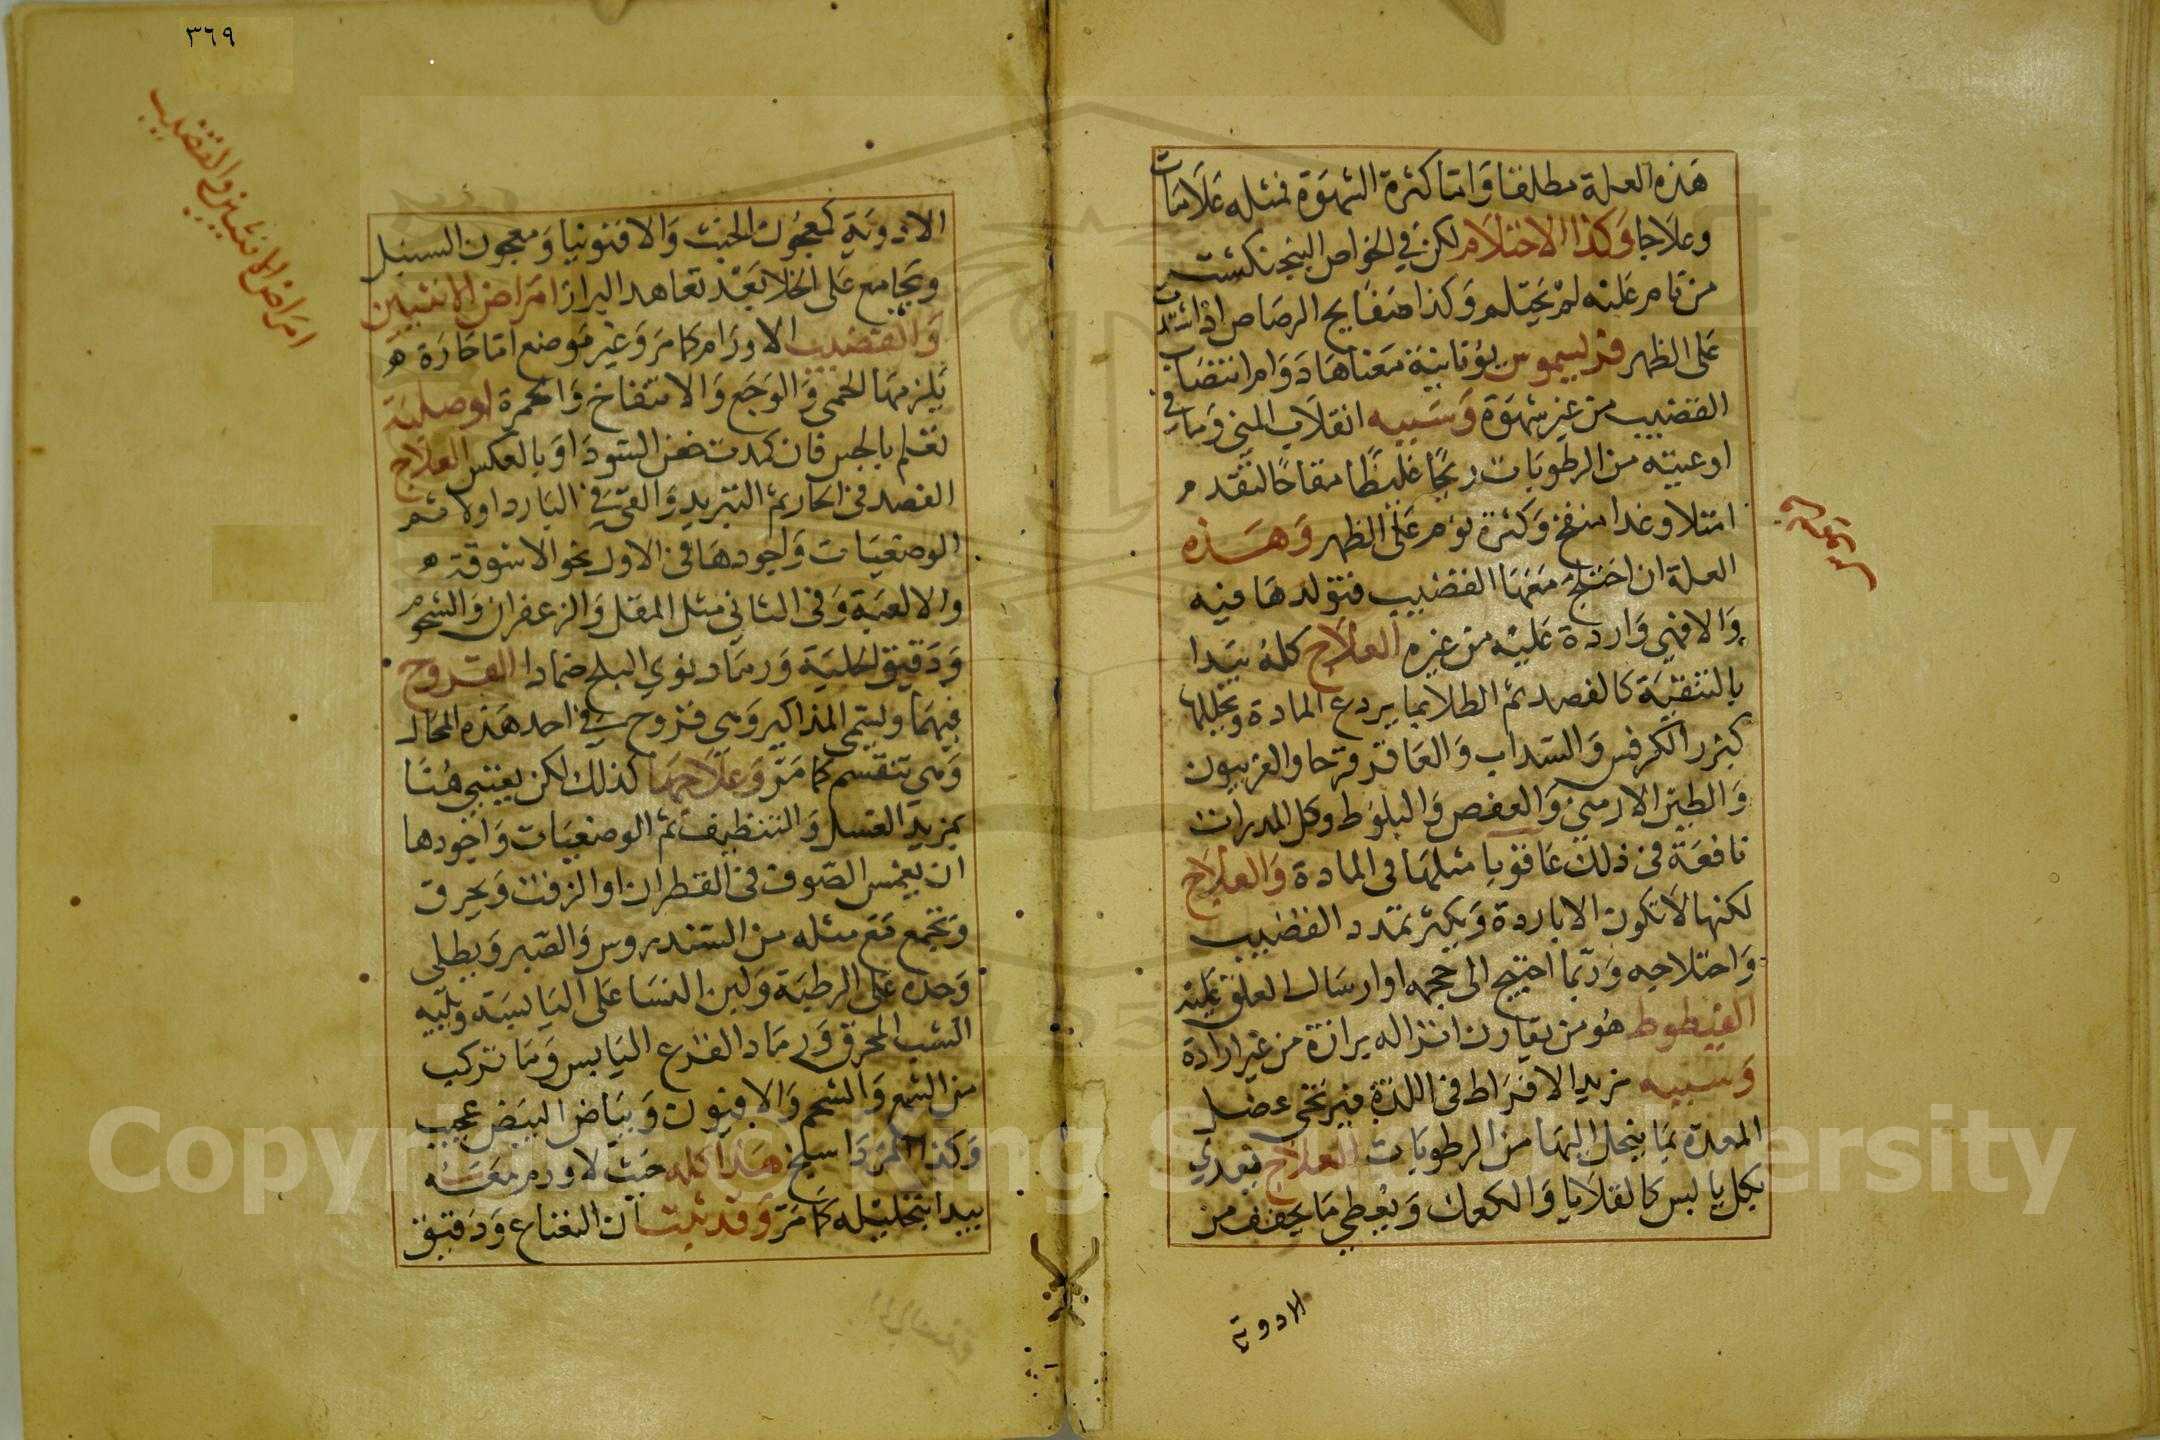 هذه العلة مطلقا واما كثرة الشهوة فمثله علامات
وعلاجا وكذا الاحتلام لكن في الخواص البنجنكشت
من نام عليه لم يحتلم وكذا صفايح الرصاص اذا شدت
على الظهر فرليسموس يونانية معناها دوام انتصاب
القضيب من غير شهوة وسببه انقلاب المني وما في
اوعيته من الرطوبات ريحا غليظا نفاخا لتقدم
امتلا وغدا منفخ وكثرة نوم على الظهر وهذه
العلة ان اختلج معها القضيب فتولدها فيه
والا فهي واردة عليه من غيره العلاج كله يبدا
بالتنقية كالفصد ثم الطلا بما يردع المادة ويحللها
كبزر الكرفس والسداب والعاقر قرحا والفربيون
والطين الارمني والعفص والبلوط وكل المدرات
نافعة في ذلك عاقونا مثلها في المادة والعلاج
لكنها لا تكون الا باردة ويكثر تمدد القضيب
واختلاجه وربما احتيج الى حجمه او ارسال العلق عليه
العنيطوط هو من يقارن انزاله برازة من غير ارادة
وسببه مزيد الافراط في اللذة فيرتخي عضل
المعدة بما ينحل اليها من الرطوبات العلاج تغدي
بكل يابس كالقلايا والكعك ويعطي ما يجفف من
الادوية
سرعة
٣٦٩
امراض الانثيين والقضيب
الادوية كمعجون الخبث والافتونيا ومعجون السنبل
ويجامع على الخلا بعد تعاهد البراز امراض الانثيين
والقضيب الاورام كما مر وغير موضع اما حارة
يلزمها الحمى والوجع والانتفاخ والحمرة او صلبة
تعلم بالجس فان كمدت فمن السودا او بالعكس العلاج
الفصد في الحار ثم التبريد والقي في البارد اولا ثم
الوضعيات واجودها في الاول نحو الاسوقة
والالعبة وفي الثاني مثل المقل والزعفران والشحوم
ودقيق الحلبة ورماد نوي البلح ضمادا القروح
فيهما وليتمى المذاكير وهي قروح في احد هذه المحال
وهي تنقسم كما مر وعلاجها كذلك لكن يعتني هنا
بمزيد الغسل والتنظيف ثم الوضعيات واجودها
ان يغمس الصوف في القطران او الزفت ويحرق
وتجمع مع مثله من السندروس والصبر ويطلى
وحده على الرطبة ولبن النسا على اليابسة ويليه
الشب المحرق ورماد القرع اليابس وما تركب
من الشمع والشحم والافيون وبياض البيض عجيب
وكذا المرداسنج هذا كله حيث لا ورم معه
يبدا بتحليله كما مر وقد ثبت ان النعناع ودقيق